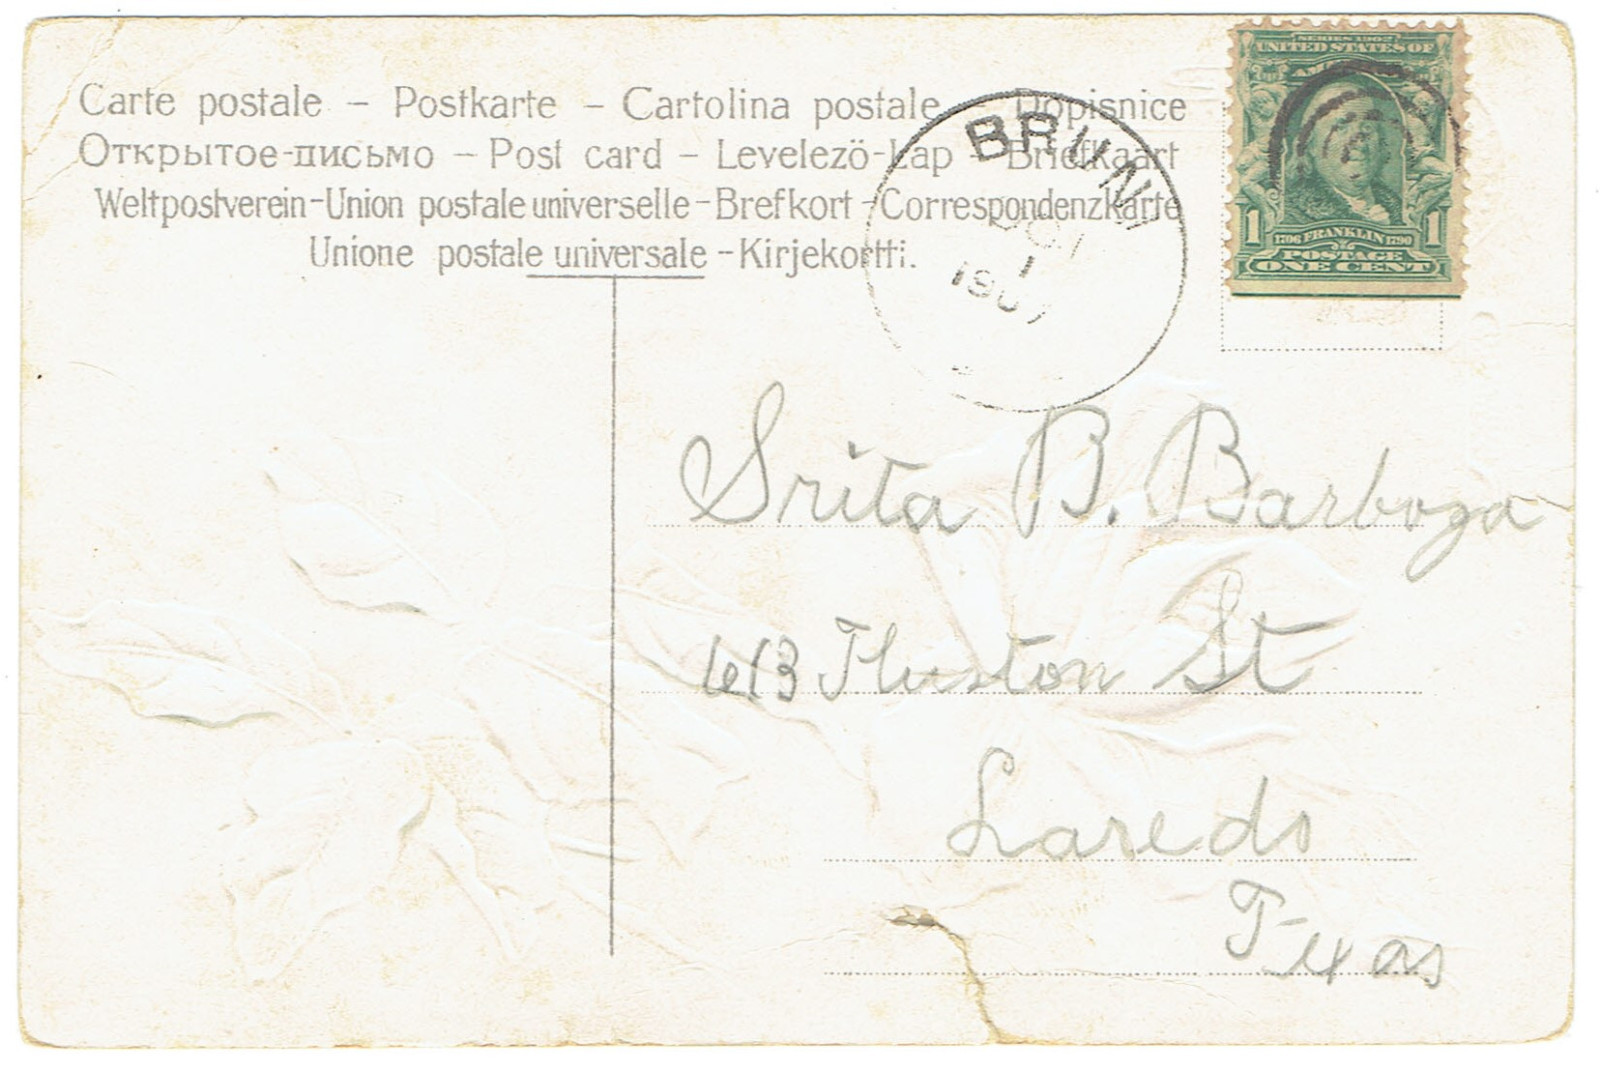 Carte postale – Postkarte – Cartolina postale – Dopisnice
Открытое-письмо – Post card – Levelezö-Lap – Briefkaart
Weltpostverein-Union postale universelle-Brefkort-Correspondenzkarte
Unione postale universale-Kirjekortti.
BRUNI
OCT
1
1907
SERIES 1902
UNITED STATES OF
AMERICA
1 1706 FRANKLIN 1790 1
POSTAGE
ONE CENT
Srita B. Barboga
613 Huston St
Laredo
Texas